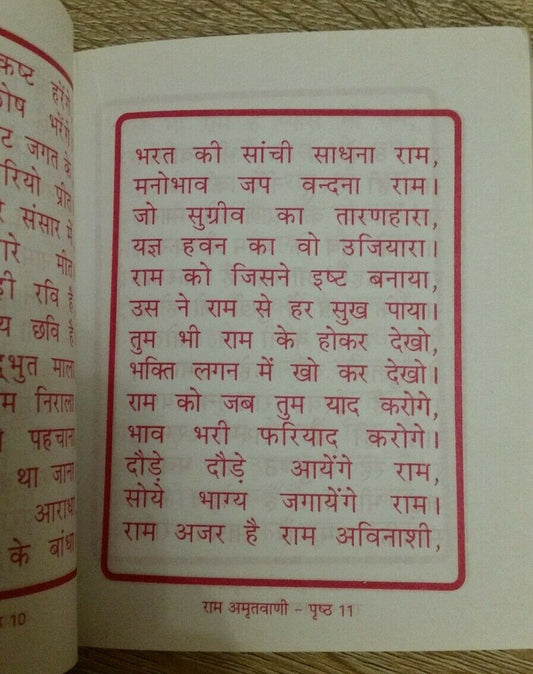 कष्ट हरेंगे
भरेंगे
जगत के
प्रीत
संसार में
मीत
रवि है
छवि है
माला
निराला
पहचाना
था जाना
आराधा
के बांधा
10
भरत की सांची साधना राम,
मनोभाव जप वन्दना राम।
जो सुग्रीव का तारणहारा,
यज्ञ हवन का वो उजियारा।
राम को जिसने इष्ट बनाया,
उस ने राम से हर सुख पाया।
तुम भी राम के होकर देखो,
भक्ति लगन में खो कर देखो।
राम को जब तुम याद करोगे,
भाव भरी फरियाद करोगे।
दौड़े दौड़े आयेंगे राम,
सोये भाग्य जगायेंगे राम।
राम अजर है राम अविनाशी,
राम अमृतवाणी - पृष्ठ 11